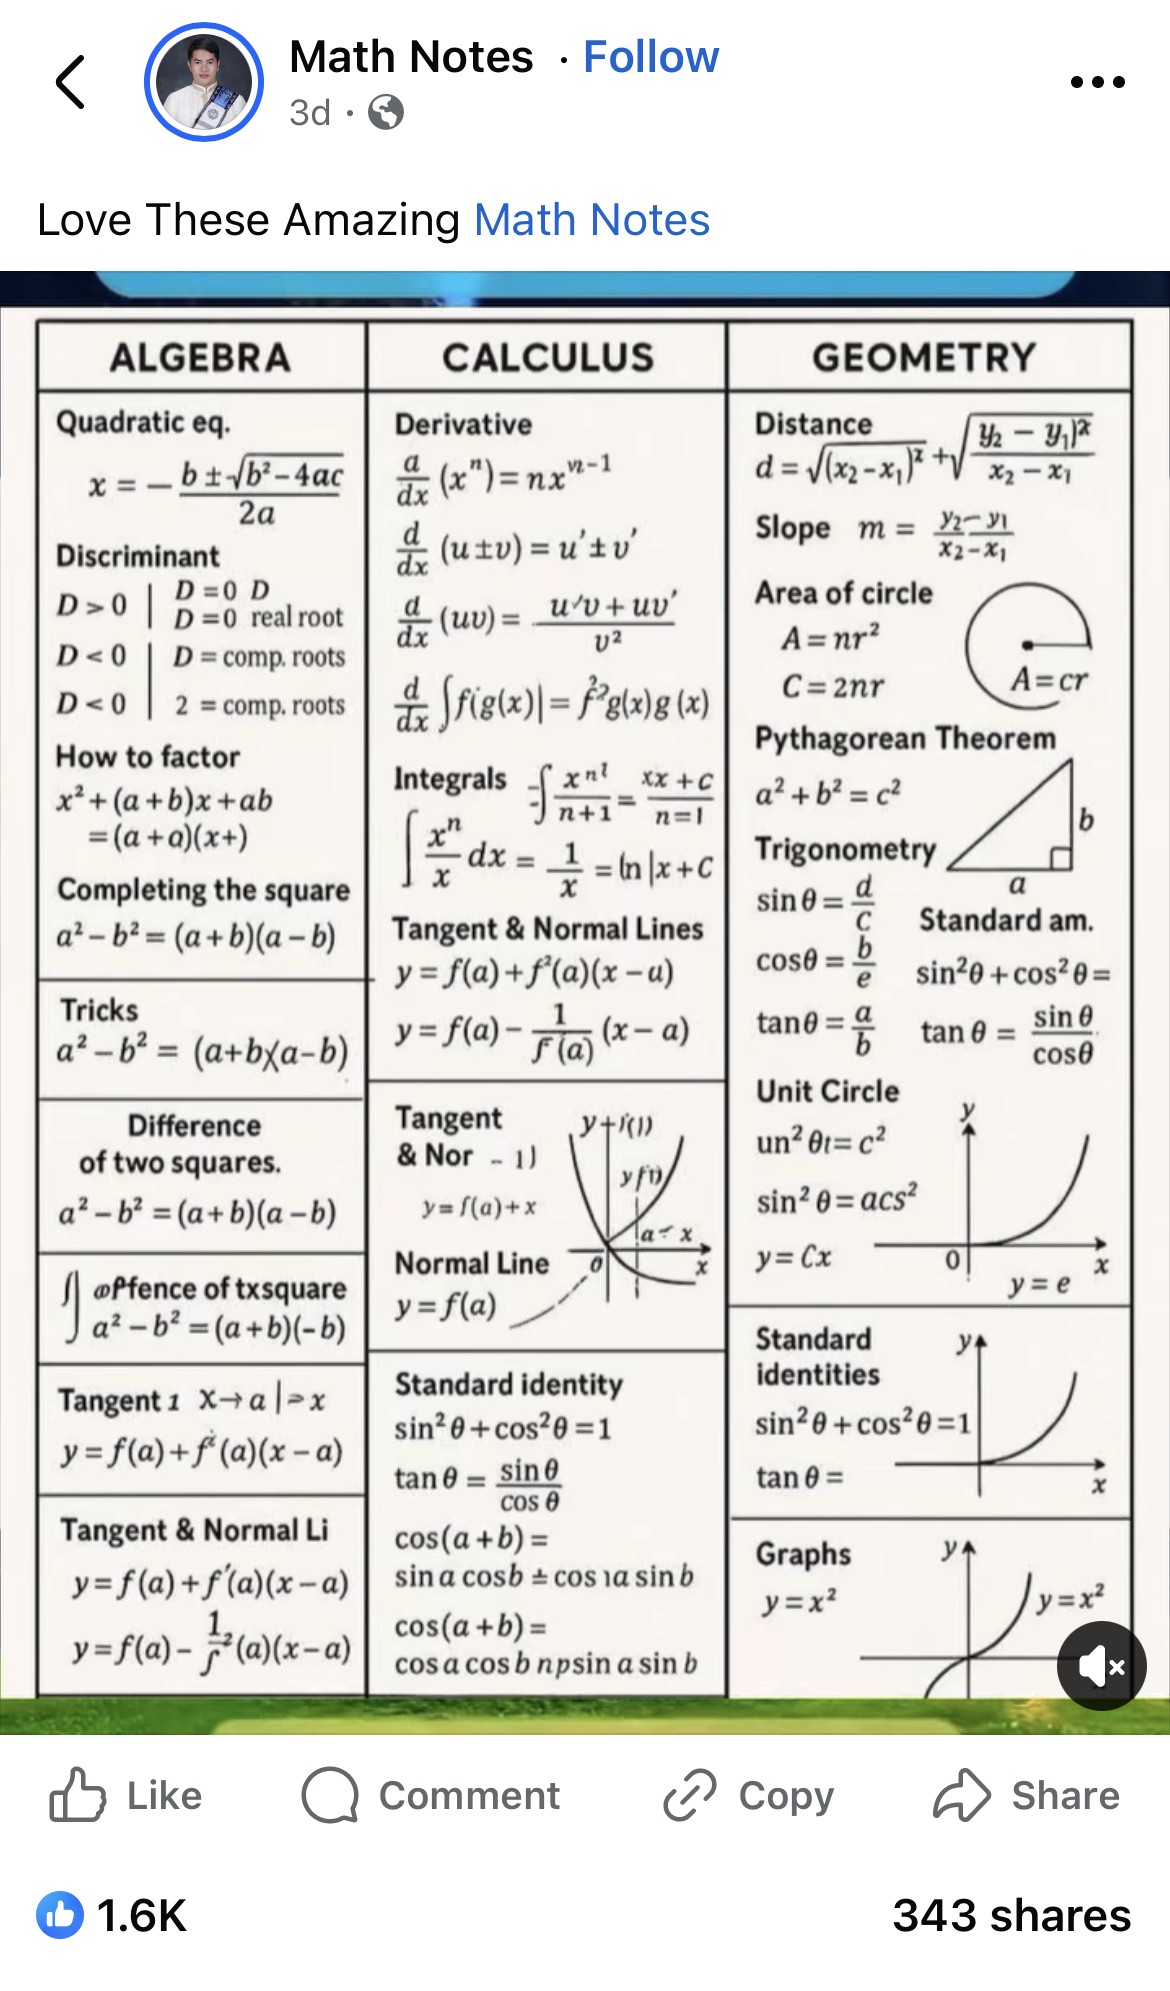 Math Notes · Follow
3d ·
Love These Amazing Math Notes
ALGEBRA
Quadratic eq.
x = − b ± √b² − 4ac / 2a
Discriminant
D > 0 | D = 0 D
D = 0 real root
D < 0 | D = comp. roots
D < 0 | 2 = comp. roots
How to factor
x² + (a + b)x + ab
= (a + a)(x+)
Completing the square
a² − b² = (a + b)(a − b)
Tricks
a² − b² = (a+b)(a−b)
Difference
of two squares.
a² − b² = (a + b)(a − b)
fence of txsquare
a² − b² = (a + b)(−b)
Tangent 1 X→a |> x
y = f(a) + f²(a)(x − a)
Tangent & Normal Li
y = f(a) + f′(a)(x − a)
y = f(a) − 1/f² (a)(x − a)
CALCULUS
Derivative
a/dx (xⁿ) = nxⁿ⁻¹
d/dx (u ± v) = u′ ± v′
d/dx (uv) = u′v + uv′ / v²
d/dx ∫f(g(x)| = f²g(x)g (x)
Integrals
n+1 = xx + C / n=1
∫ xⁿ/x dx = 1/x = ln |x + C
Tangent & Normal Lines
y = f(a) + f²(a)(x − a)
y = f(a) − 1/f (a) (x − a)
Tangent
& Nor - 1)
y = f(a) + x
y+f(1)
y f(1)
a < x
0
x
Normal Line
y = f(a)
Standard identity
sin² θ + cos² θ = 1
tan θ = sin θ / cos θ
cos(a + b) =
sin a cosb ± cos ıa sin b
cos(a + b) =
cos a cos b npsin a sin b
GEOMETRY
Distance
d = √(x₂ − x₁)² + √y₂ − y₁)² / x₂ − x₁
Slope m = y₂ − y₁ / x₂ − x₁
Area of circle
A = nr²
C = 2nr
A = cr
Pythagorean Theorem
a² + b² = c²
b
a
Trigonometry
sin θ = d/c
Standard am.
cosθ = b/e
sin²θ + cos² θ =
tanθ = a/b
tan θ = sin θ / cosθ
Unit Circle
un² θt = c²
sin² θ = acs²
y = Cx
y
0
x
y = e
Standard
identities
sin² θ + cos² θ = 1
tan θ =
y
x
Graphs
y = x²
y
y = x²
Like
Comment
Copy
Share
1.6K
343 shares